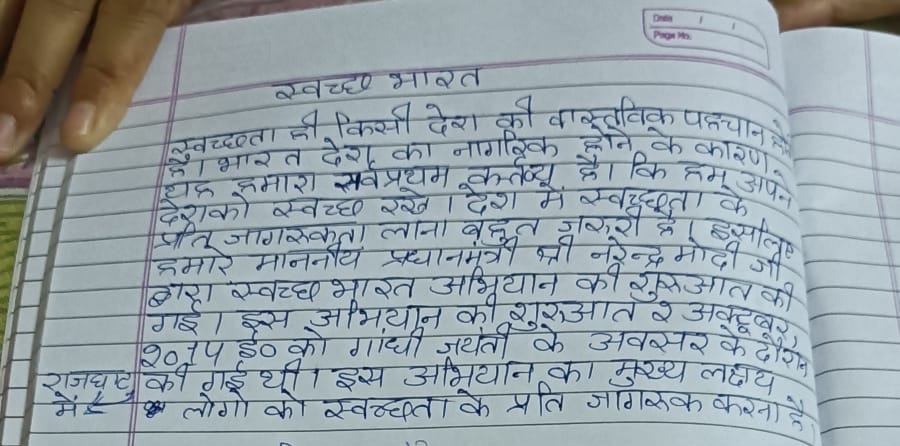 Date / /
Page No.
स्वच्छ भारत
स्वच्छता ही किसी देश की वास्तविक पहचान होती
है। भारत देश का नागरिक होने के कारण
यह हमारा सर्वप्रथम कर्तव्य है। कि हम अपने
देशको स्वच्छ रखे। देश में स्वच्छता के
प्रति जागरुकता लाना बहुत जरुरी है। इसलिए
हमारे माननीय प्रधानमंत्री श्री नरेन्द्र मोदी जी
द्वारा स्वच्छ भारत अभियान की शुरुआत की
गई। इस अभियान की शुरुआत २ अक्टूबर,
२०१५ ई० को गांधी जयंती के अवसर के दौरान
राजघाट में की गई थी। इस अभियान का मुख्य लक्ष्य
लोगो को स्वच्छता के प्रति जागरुक करना है।